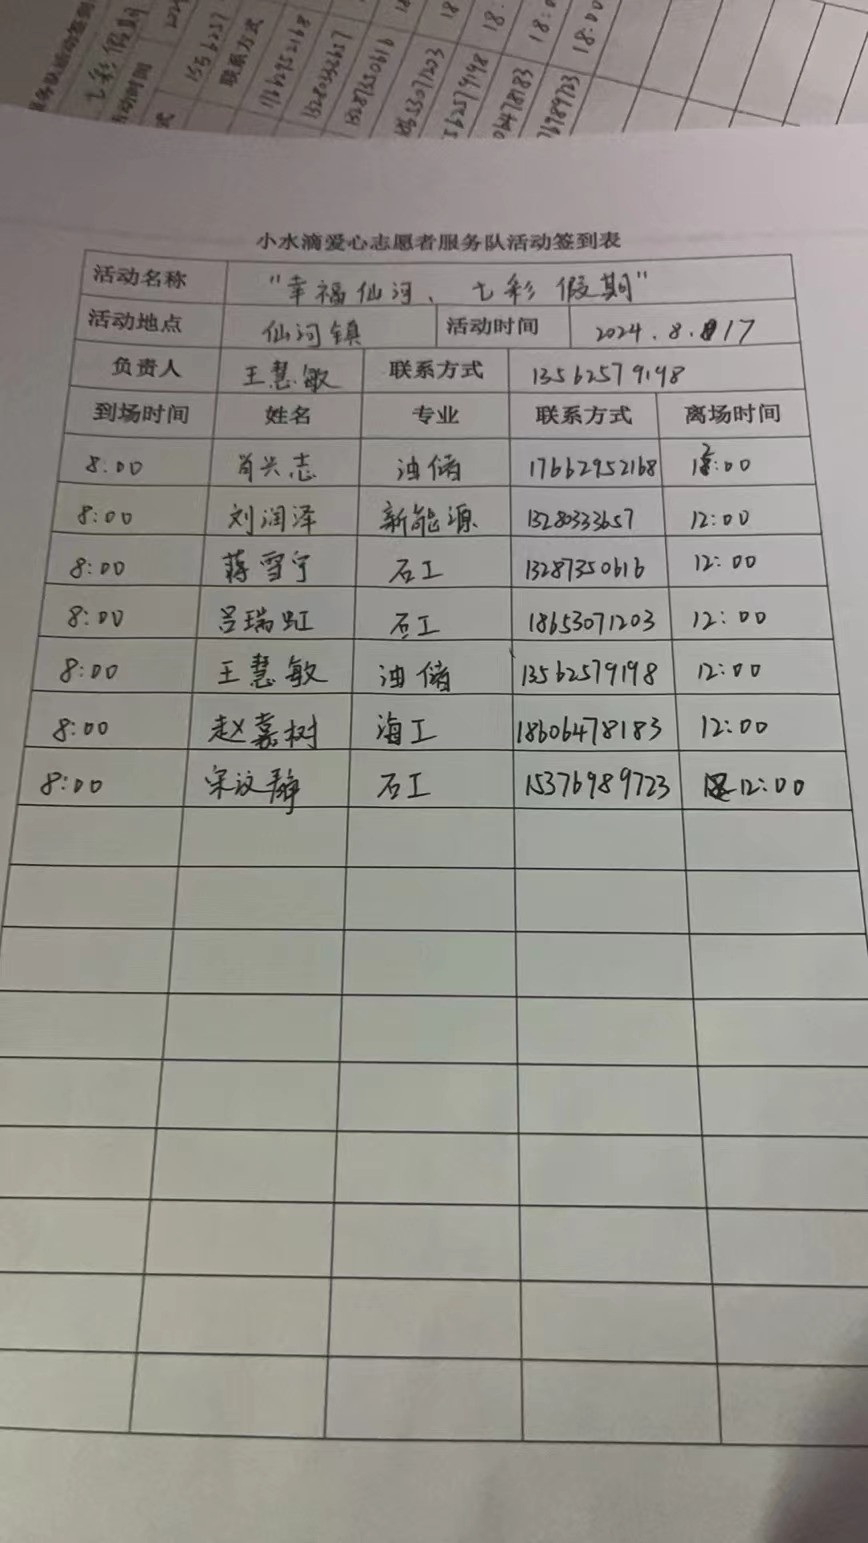 小水滴爱心志愿者服务队活动签到表
活动名称 "幸福仙河、七彩假期"
活动地点 仙河镇 活动时间 2024.8.17
负责人 王慧敏 联系方式 13562579198
到场时间 姓名 专业 联系方式 离场时间
8:00 肖兴志 油储 17662952168 12:00
8:00 刘润泽 新能源 13280333657 12:00
8:00 蒋雪宁 石工 13287350616 12:00
8:00 吕瑞虹 石工 18653071203 12:00
8:00 王慧敏 油储 13562579198 12:00
8:00 赵嘉树 海工 18606478183 12:00
8:00 宋汶静 石工 15376989723 12:00